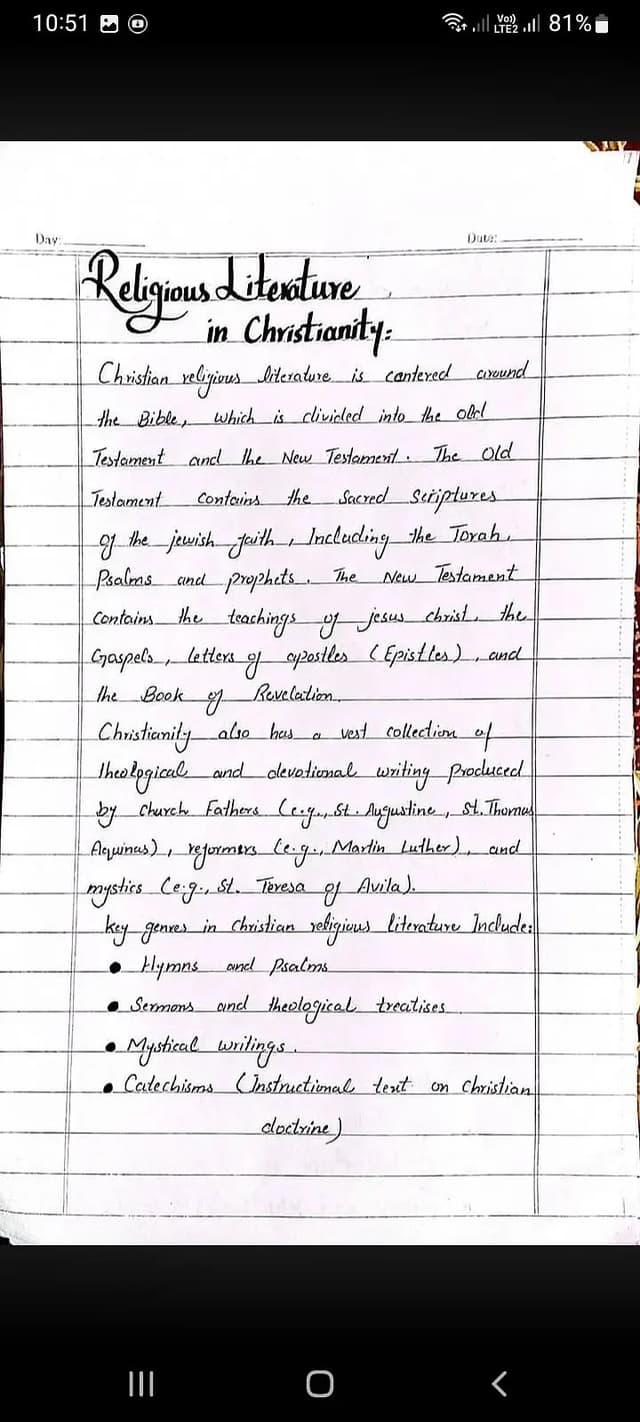 10:51
Vo))
LTE2
81%
Day:
Date:
Religious Literature
in Christianity:
Christian religious literature is cantered around
the Bible, which is divided into the old
Testament and the New Testament. The Old
Testament contains the Sacred Scriptures
of the jewish faith, Including the Torah,
Psalms and prophets. The New Testament
contains the teachings of jesus christ, the
Gospels, letters of apostles (Epistles), and
the Book of Revelation.
Christianity also has a vast collection of
theological and devotional writing Produced
by Church Fathers (e.g., St. Augustine, St. Thomas
Aquinas), reformers (e.g., Martin Luther), and
mystics (e.g., St. Teresa of Avila).
key genres in Christian religious literature Include:
• Hymns and Psalms
• Sermons and theological treatises
• Mystical writings.
• Catechisms (Instructional text on Christian
doctrine)